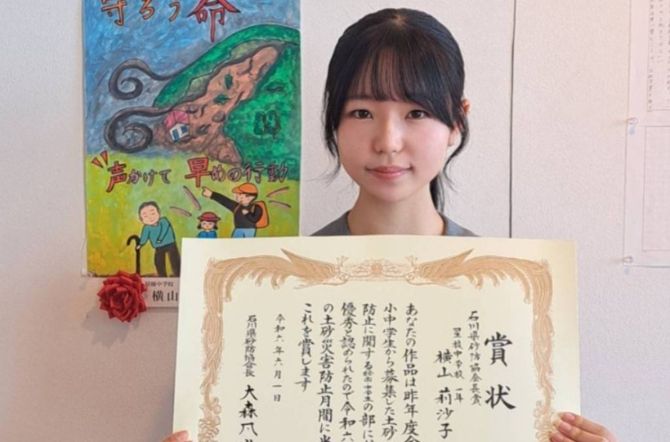 守ろう命
声かけて 早めの行動
中学校
横山
賞状
石川県砂防協会長賞
星稜中学校 一年
横山 莉沙子
あなたの作品は昨年度全
小中学生から募集した土砂
防止に関する絵画中学生の部に
優秀と認められたので令和六
の土砂災害防止月間に
これを賞します
令和六年六月一日
石川県砂防協会長
大森凡